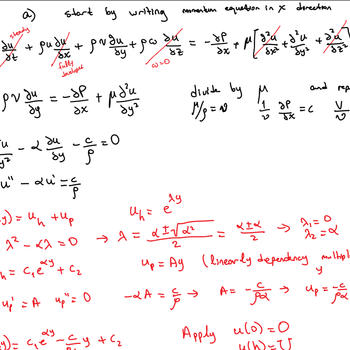 a) start by writing momentum equation in x direction
∂u/∂t + ρu ∂u/∂x + ρv ∂u/∂y + ρω ∂u/∂z = -∂P/∂x + μ[∂²u/∂x² + ∂²u/∂y² + ∂²u/∂z²]
steady fully developed ω=0
ρv ∂u/∂y = -∂P/∂x + μ ∂²u/∂y² divide by μ and rep
μ/ρ = υ 1/υ ∂P/∂x = c V
u/y² - α ∂u/∂y - c/ρ = 0
u'' - αu' = c/ρ
y) = u_h + u_p u_h = e^λy
λ² - αλ = 0 → λ = α ± √α² / 2 = α±α / 2 → λ₁ = 0 λ₂ = α
h = c₁e^αy + c₂ u_p = Ay (linearly dependency multiply y
u_p' = A u_p'' = 0 -αA = c/ρ → A = -c/ρα → u_p = -c/ρα
y) = c₁e^αy - c/ρα y + c₂ Apply u(0) = 0
u(h) = U